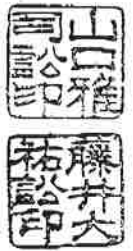 山口雅
司訟印
藤井大
祐訟印